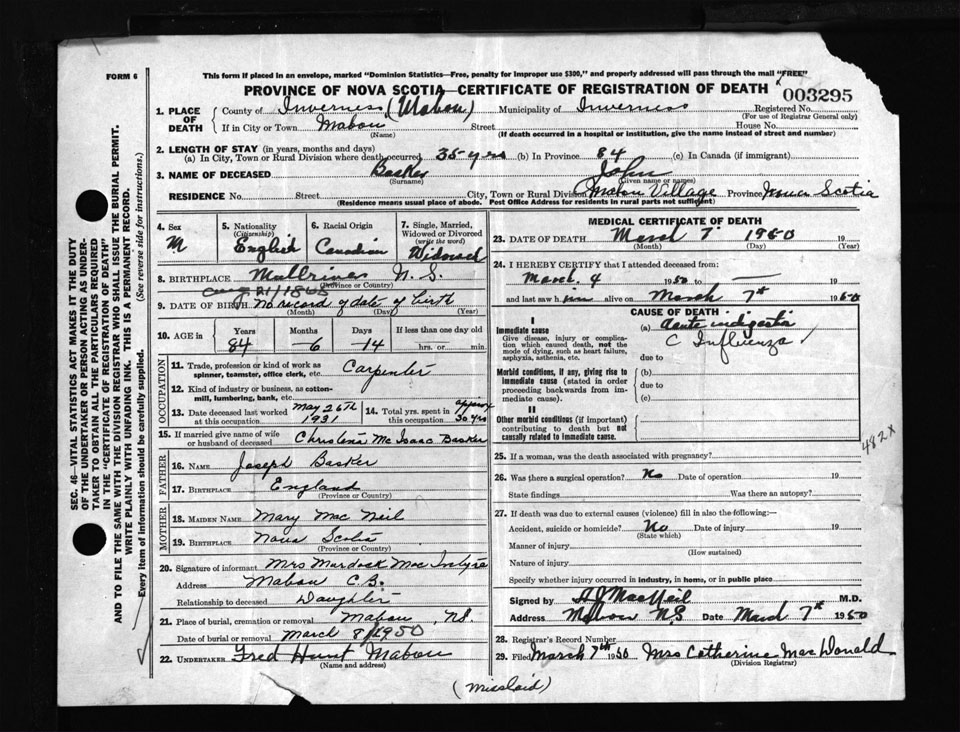 FORM 6
This form if placed in an envelope, marked "Dominion Statistics—Free, penalty for improper use $300," and properly addressed will pass through the mail "FREE"
PROVINCE OF NOVA SCOTIA—CERTIFICATE OF REGISTRATION OF DEATH
003295
1. PLACE OF DEATH { County of Inverness (Mabou) Municipality of Inverness Registered No.
(For use of Registrar General only)
If in City or Town Mabou Street House No.
(Name) (If death occurred in a hospital or institution, give the name instead of street and number)
2. LENGTH OF STAY (in years, months and days)
(a) In City, Town or Rural Division where death occurred 35-yrs (b) In Province 84 (c) In Canada (if immigrant)
3. NAME OF DECEASED Basker John
(Surname) (Given name or names)
RESIDENCE No. Street City, Town or Rural Division Mabou Village Province Nova Scotia
(Residence means usual place of abode. Post Office Address for residents in rural parts not sufficient)
4. Sex M
5. Nationality (Citizenship) English
6. Racial Origin Canadian
7. Single, Married, Widowed or Divorced (write the word) Widowed
8. BIRTHPLACE N.S.
(Province or Country)
9. DATE OF BIRTH No record of date of birth
(Month) (Day) (Year)
10. AGE Years 84 Months –6 Days –14 If less than one day old hrs. or min.
OCCUPATION
11. Trade, profession or kind of work as spinner, teamster, office clerk, etc. Carpenter
12. Kind of industry or business, as cotton-mill, lumbering, bank, etc.
13. Date deceased last worked at this occupation May 26TH 1931
14. Total yrs. spent in this occupation 30 yrs
15. If married give name of wife or husband of deceased Christena Mc Isaac Basker
FATHER
16. NAME Joseph Basker
17. BIRTHPLACE England
(Province or Country)
MOTHER
18. MAIDEN NAME Mary Mac Neil
19. BIRTHPLACE Nova Scotia
(Province or Country)
20. Signature of informant Mrs Murdock Mac Intyre
Address Mabou C.B.
Relationship to deceased Daughter
21. Place of burial, cremation or removal Mabou, N.S.
Date of burial or removal March 8/1950
22. UNDERTAKER Fred Hunt Mabou
(Name and address)
MEDICAL CERTIFICATE OF DEATH
23. DATE OF DEATH March 7 1950 19
(Month) (Day) (Year)
24. I HEREBY CERTIFY that I attended deceased from:
March 4 1950 to — 19
and last saw him alive on March 7th 1950
CAUSE OF DEATH
I
Immediate cause (a) Acute indigestion
Give disease, injury or complication which caused death, not the mode of dying, such as heart failure, asphyxia, asthenia, etc.
c Influenza
due to
Morbid conditions, if any, giving rise to immediate cause (stated in order proceeding backwards from immediate cause).
(b)
due to
(c)
II
Other morbid conditions (if important) contributing to death but not causally related to immediate cause.
482x
25. If a woman, was the death associated with pregnancy?
26. Was there a surgical operation? No Date of operation 19
State findings Was there an autopsy?
27. If death was due to external causes (violence) fill in also the following:—
Accident, suicide or homicide? No Date of injury 19
(State which)
Manner of injury
(How sustained)
Nature of injury
Specify whether injury occurred in industry, in home, or in public place
Signed by MacNeil M.D.
Address Mabou N.S Date March 7th 1950
28. Registrar's Record Number
29. Filed March 7th 1950 Mrs Catherine Mac Donald
(Division Registrar)
(Misslaid)
SEC. 46—VITAL STATISTICS ACT MAKES IT THE DUTY OF THE UNDERTAKER OR PERSON ACTING AS UNDERTAKER TO OBTAIN ALL THE PARTICULARS REQUIRED IN THE "CERTIFICATE OF REGISTRATION OF DEATH" AND TO FILE THE SAME WITH THE DIVISION REGISTRAR WHO SHALL ISSUE THE BURIAL PERMIT.
WRITE PLAINLY WITH UNFADING INK. THIS IS A PERMANENT RECORD.
Every item of information should be carefully supplied. (See reverse side for instructions.)